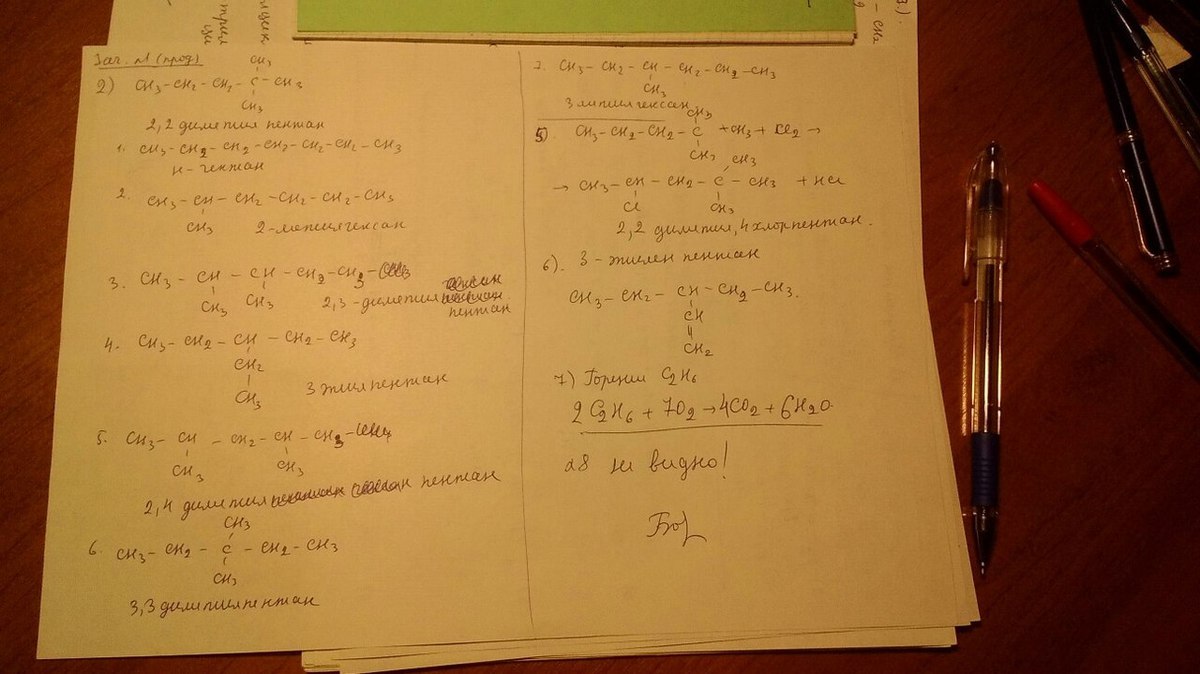 Зач. №1 (прод)
2)
CH3
CH3-CH2-CH2-C-CH3
CH3
2,2 диметил пентан
1. CH3-CH2-CH2-CH2-CH2-CH2-CH3
н-гептан
2. CH3-CH-CH2-CH2-CH2-CH3
CH3
2-метилгексан
3. CH3-CH-CH-CH2-CH3
CH3 CH3
2,3-диметил
пентан
4. CH3-CH2-CH-CH2-CH3
CH2
CH3
3 этилпентан
5. CH3-CH-CH2-CH-CH3
CH3 CH3
2,4 диметил пентан
CH3
6. CH3-CH2-C-CH2-CH3
CH3
3,3 диметилпентан
7. CH3-CH2-CH-CH2-CH2-CH3
CH3
3 метилгексан
CH3
5). CH3-CH2-CH2-C+CH3+Cl2→
CH3
CH3
→ CH3-CH-CH2-C-CH3 +HCl
Cl CH3
2,2 диметил,4 хлорпентан.
6). 3-этилен пентан
CH3-CH2-CH-CH2-CH3.
CH
CH2
7) Горения C2H6
2C2H6+7O2→4CO2+6H2O
№8 не видно!